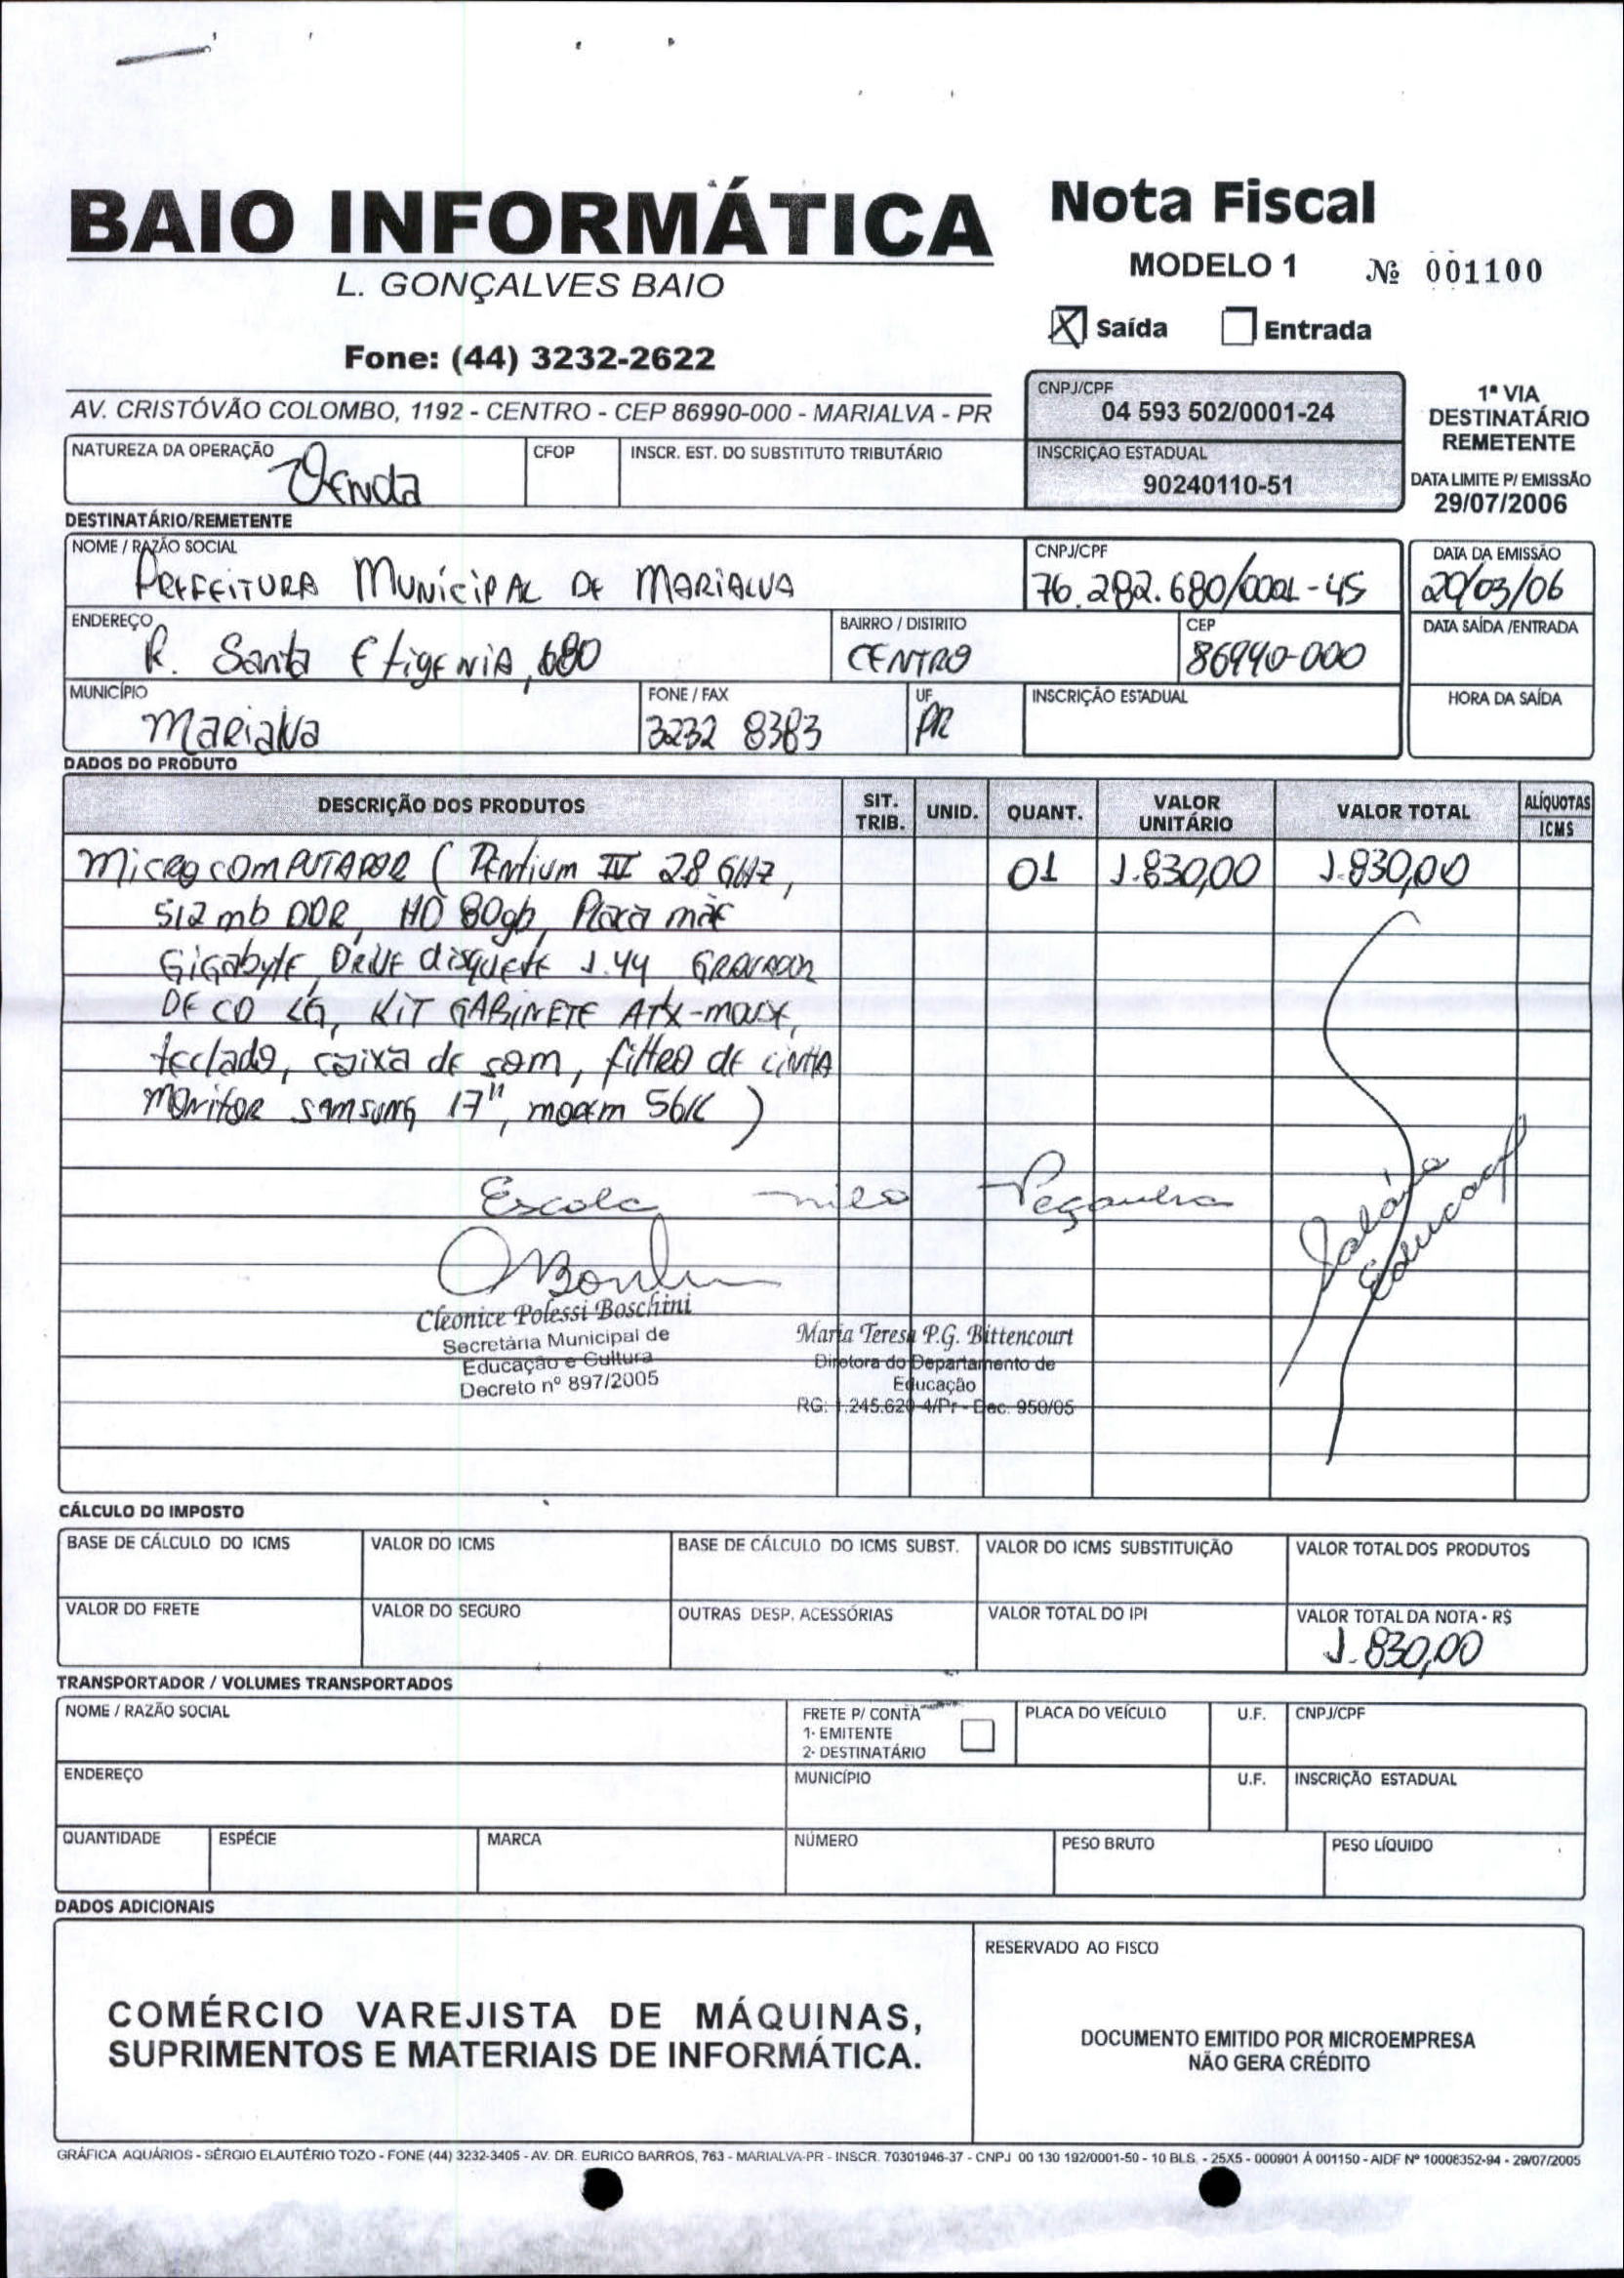 BAIO INFORMÁTICA
L. GONÇALVES BAIO
Fone: (44) 3232-2622
AV. CRISTÓVÃO COLOMBO, 1192 - CENTRO - CEP 86990-000 - MARIALVA - PR
Nota Fiscal
MODELO 1 Nº 001100
X Saída Entrada
CNPJ/CPF
04 593 502/0001-24
INSCRIÇÃO ESTADUAL
90240110-51
1ª VIA
DESTINATÁRIO
REMETENTE
DATA LIMITE P/ EMISSÃO
29/07/2006
NATUREZA DA OPERAÇÃO CFOP INSCR. EST. DO SUBSTITUTO TRIBUTÁRIO
Venda
DESTINATÁRIO/REMETENTE
NOME / RAZÃO SOCIAL CNPJ/CPF DATA DA EMISSÃO
PREFEITURA MUNICIPAL DE MARIALVA 76.282.680/0001-45 20/03/06
ENDEREÇO BAIRRO / DISTRITO CEP DATA SAÍDA /ENTRADA
R. Santa Efigenia, 680 CENTRO 86990-000
MUNICÍPIO FONE / FAX UF INSCRIÇÃO ESTADUAL HORA DA SAÍDA
Marialva 3232 8383 PR
DADOS DO PRODUTO
DESCRIÇÃO DOS PRODUTOS SIT. TRIB. UNID. QUANT. VALOR UNITÁRIO VALOR TOTAL ALÍQUOTAS ICMS
MICROCOMPUTADOR ( Pentium IV 2.8 GHz, 01 1.830,00 1.830,00
512 mb DDR, HD 80gb, Placa mãe
Gigabyte, Drive disquete 1.44 GRAVADOR
DE CD LG, KIT GABINETE ATX-mouse,
teclado, caixa de som, filtro de linha
Monitor SAMSUNG 17", modem 56K )
Escola Nilo Peçanha
Salário Educação
Cleonice Polessi Boschini
Secretária Municipal de
Educação e Cultura
Decreto nº 897/2005
Maria Teresa P.G. Bittencourt
Diretora do Departamento de
Educação
RG: 1.245.620-4/Pr - Dec. 950/05
CÁLCULO DO IMPOSTO
BASE DE CÁLCULO DO ICMS VALOR DO ICMS BASE DE CÁLCULO DO ICMS SUBST. VALOR DO ICMS SUBSTITUIÇÃO VALOR TOTAL DOS PRODUTOS
VALOR DO FRETE VALOR DO SEGURO OUTRAS DESP. ACESSÓRIAS VALOR TOTAL DO IPI VALOR TOTAL DA NOTA - R$
1.830,00
TRANSPORTADOR / VOLUMES TRANSPORTADOS
NOME / RAZÃO SOCIAL FRETE P/ CONTA PLACA DO VEÍCULO U.F. CNPJ/CPF
1- EMITENTE
2- DESTINATÁRIO
ENDEREÇO MUNICÍPIO U.F. INSCRIÇÃO ESTADUAL
QUANTIDADE ESPÉCIE MARCA NÚMERO PESO BRUTO PESO LÍQUIDO
DADOS ADICIONAIS
COMÉRCIO VAREJISTA DE MÁQUINAS,
SUPRIMENTOS E MATERIAIS DE INFORMÁTICA.
RESERVADO AO FISCO
DOCUMENTO EMITIDO POR MICROEMPRESA
NÃO GERA CRÉDITO
GRÁFICA AQUÁRIOS - SÉRGIO ELAUTÉRIO TOZO - FONE (44) 3232-3405 - AV. DR. EURICO BARROS, 763 - MARIALVA-PR - INSCR. 70301946-37 - CNPJ 00 130 192/0001-50 - 10 BLS. - 25X5 - 000901 À 001150 - AIDF Nº 10006352-94 - 29/07/2005